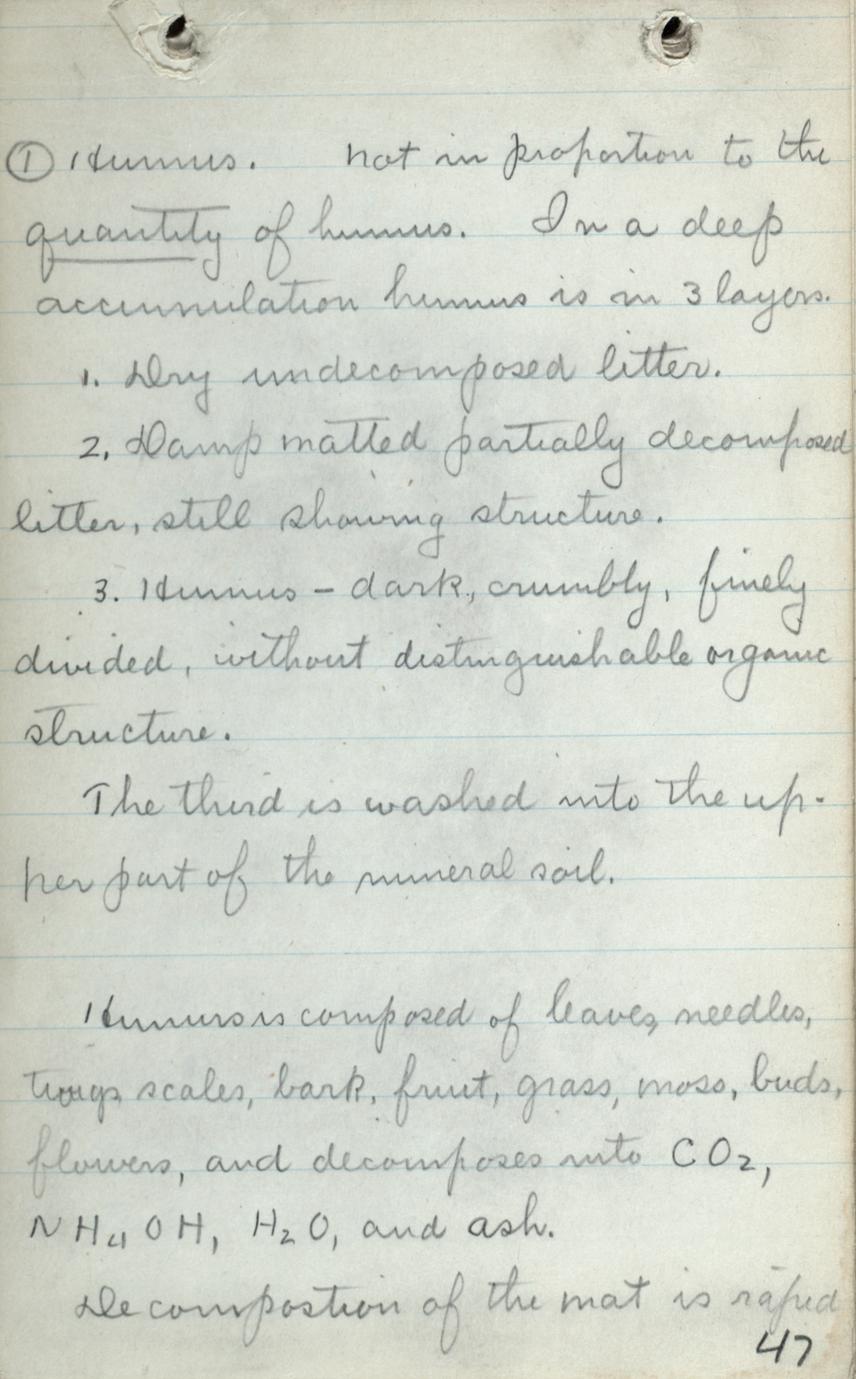 ① Humus. Not in proportion to the
quantity of humus. In a deep
accumulation humus is in 3 layers.
1. Dry undecomposed litter.
2. Damp matted partially decomposed
litter, still showing structure.
3. Humus – dark, crumbly, finely
divided, without distinguishable organic
structure.
The third is washed into the up-
per part of the mineral soil.
Humus is composed of leaves, needles,
twigs scales, bark, fruit, grass, moss, buds,
flowers, and decomposes into CO₂,
NH₄OH, H₂O, and ash.
Decompostion of the mat is rapid
47